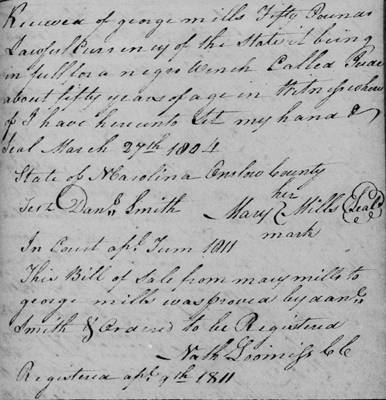 Received of george mills Fifty Pounds
Lawful Currency of the State it being
in full for a negro Wench Called Pride
about fifty years of age in Witness where
of I have hereunto Set my hand &
Seal March 27th 1804
State of N Carolina Onslow County
Test Danl Smith Mary her mark Mills Seal
In Court apl Term 1811
This Bill of Sale from mary mills to
george mills was proved by danl
Smith & Ordered to be Registered
Nath Loomiss CC
Registered apl 9th 1811